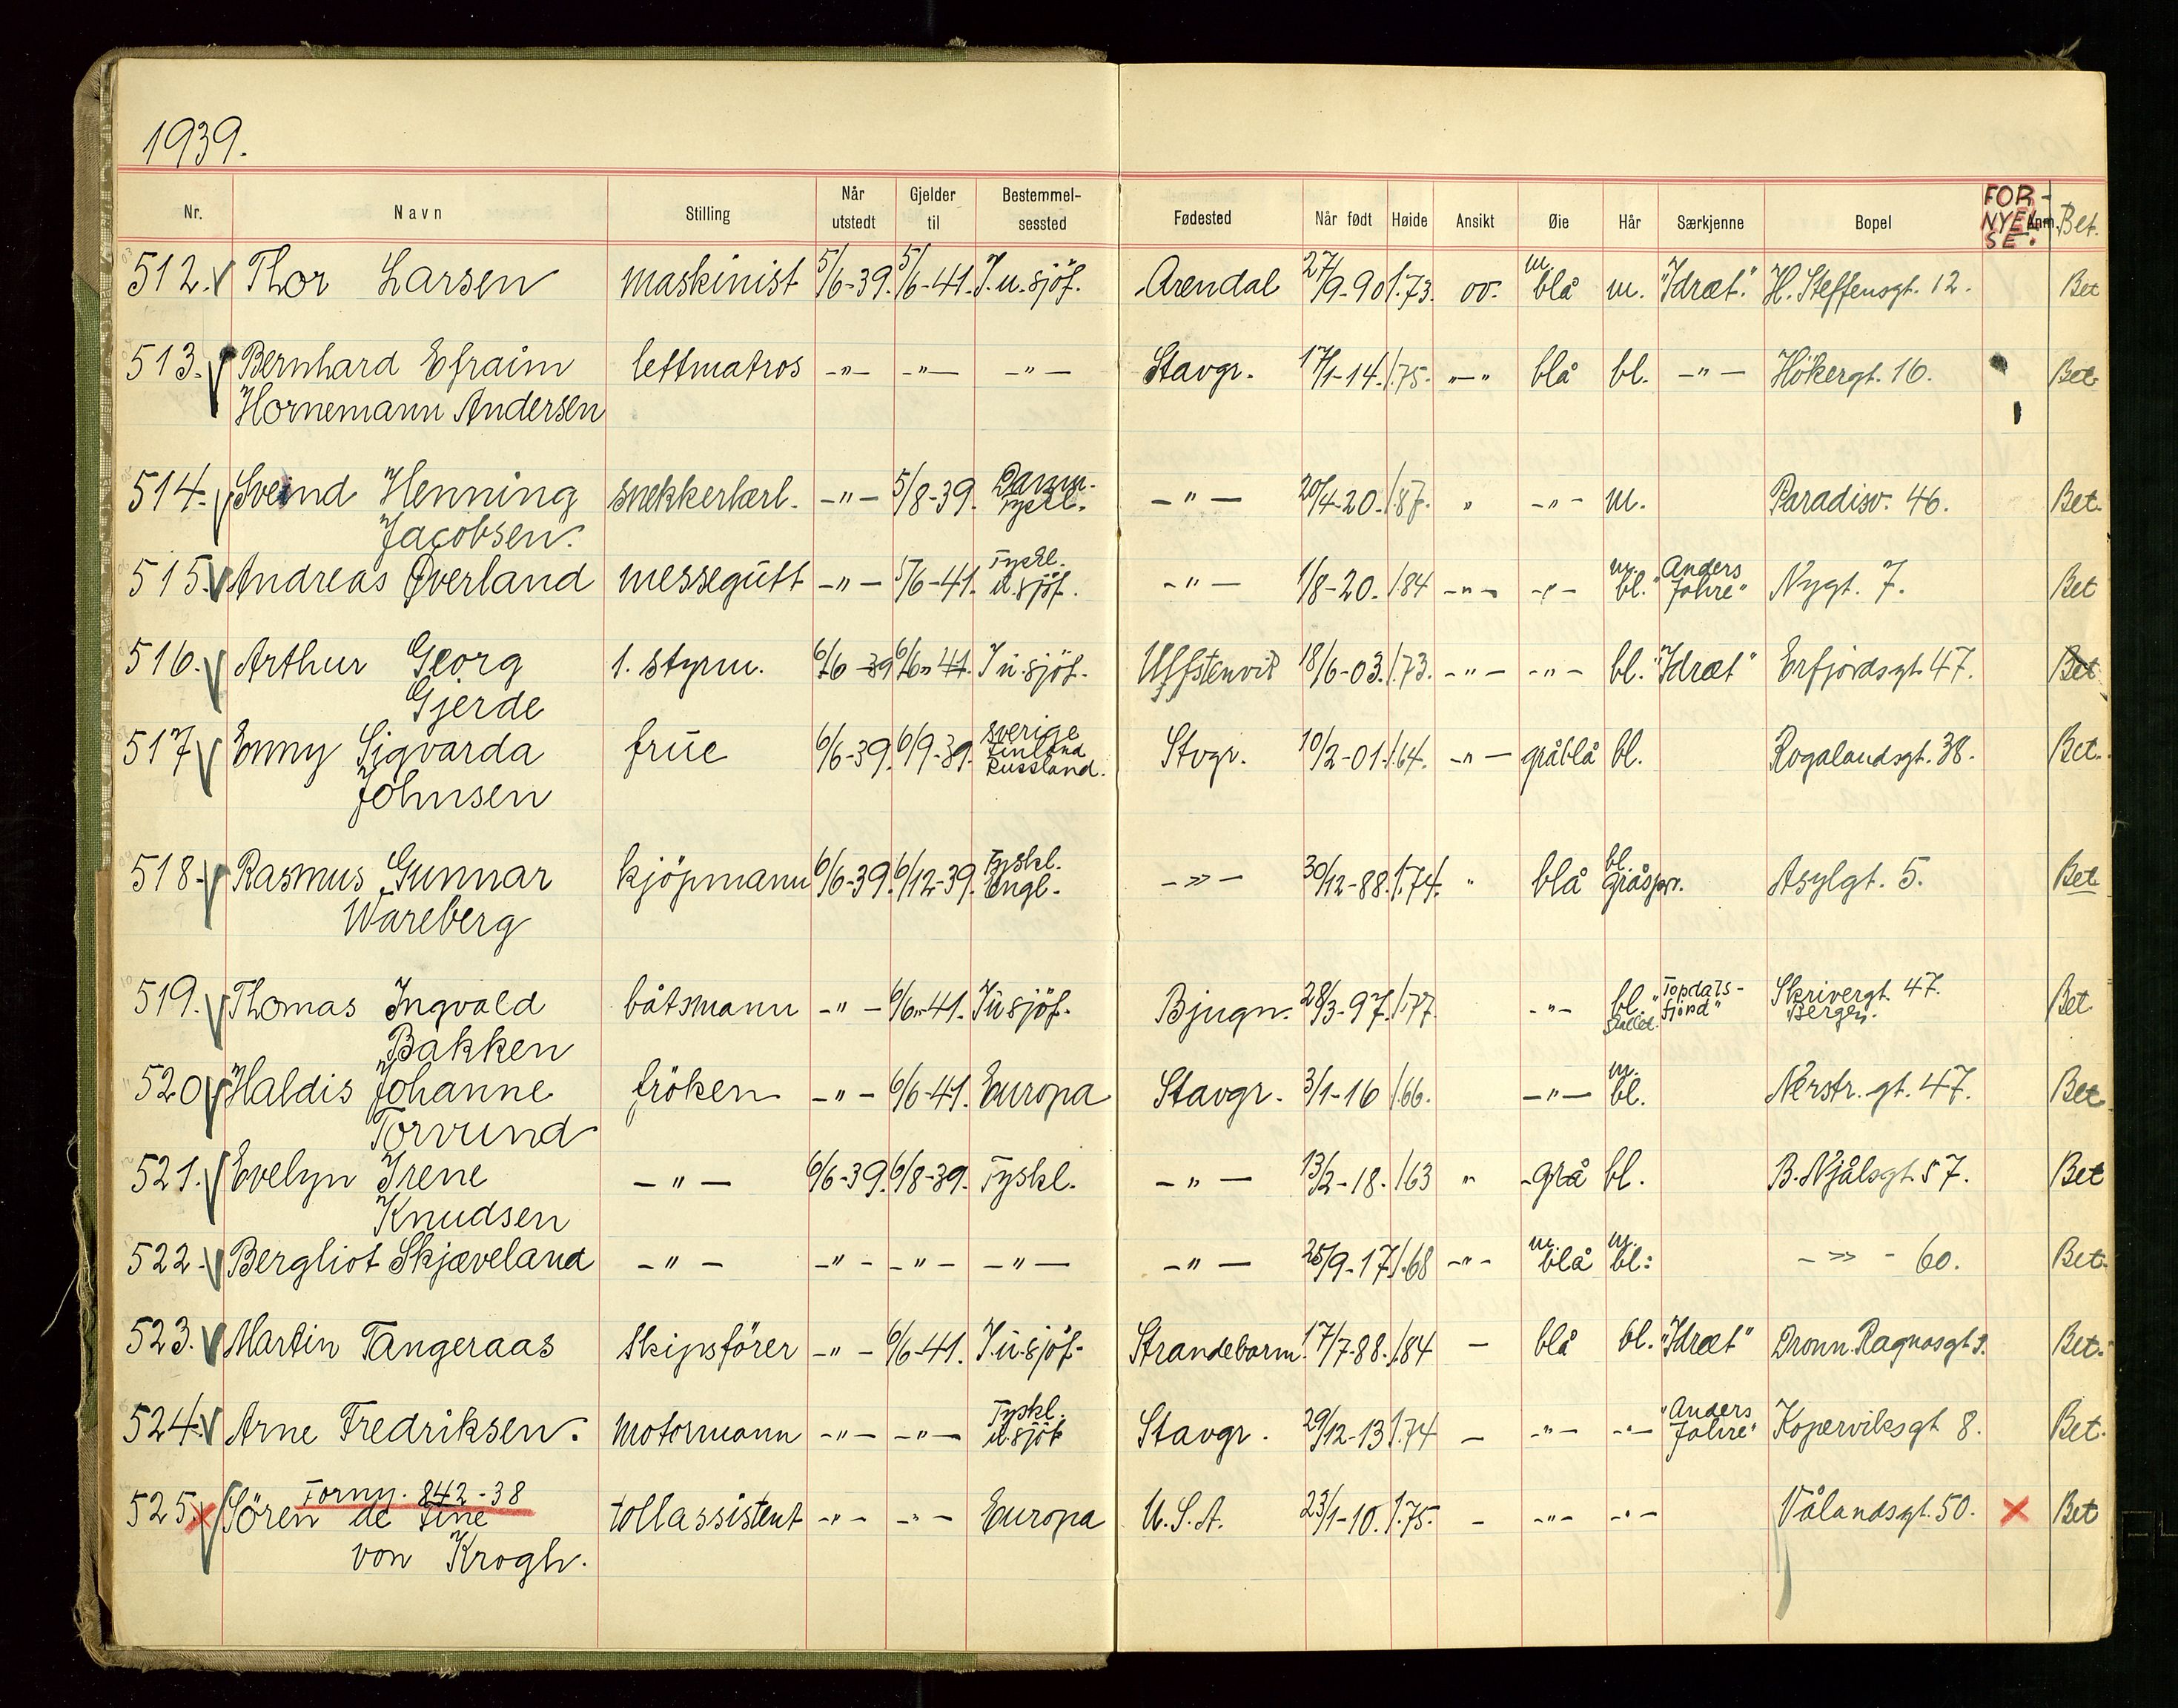 1939.
Nr. Navn Stilling Når utstedt Gjelder til Bestemmel-sessted Fødested Når født Høide Ansikt Øie Hår Særkjenne Bopel FOR-NYEL-SE. Anm. Bet.
512. Thor Larsen maskinist 5/6-39. 5/6-41. I.u.sjöf. Arendal 27/9-90 1.73. ov. m. blå m. "Idræt." H. Steffensgt. 12. Bet
513. Bernhard Efraim lettmatros -"- -"- -"- Stavgr. 17/1-14. 1.75. "-" blå bl. -"- Hökergt. 16. Bet.
Hornemann Andersen
514. Sveind Henning snekkerlærl. -"- 5/8-39. Danm. Tyskl. -"- 20/4-20. 1.87. " -"- m. Paradisv. 46. Bet.
Jacobsen.
515. Andreas Øverland messegutt -"- 5/6-41. Tyskl. u.sjöf. -"- 1/8-20. 1.84 -"- -"- m. bl. "Anders Jahre" Nygt. 7. Bet
516. Arthur Georg 1. styrm. 6/6-39 6/6-41. I u.sjöf. Ulfstenvik 18/6-03. 1.73. -"- -"- bl. "Idræt" Erfjordsgt. 47. Bet
Gjerde
517 Enny Sigvarda frue 6/6-39. 6/9-39. Sverige Finland Russland. Stvgr. 10/2-01. 1.64. -"- gråblå bl. Rogalandsgt. 38. Bet.
Johnsen
518. Rasmus Gunnar kjöpmann 6/6-39. 6/12-39. Tyskl. Engl. -"- 30/12-88. 1.74. " blå bl. gråspr. Asylgt. 5. Bet
Wareberg
519. Thomas Ingvald båtsmann -"- 6/6-41. I u sjöf. Bjugn. 28/3-97. 1.77. -"- bl. skallet. "Topdals-fjord" Skrivergt. 47. Bergen. Bet
Bakken
520 Haldis Johanne fröken -"- 6/6-41. Europa Stavgr. 3/1-16 1.66. -"- m. bl. Nerstr. gt. 47. Bet
Torvund
521. Evelyn Irene -"- 6/6-39. 6/8-39. Tyskl. -"- 13/2-18. 1.63 " -grå bl. B. Njålsgt. 57. Bet
Knudsen
522. Bergliot Skjæveland -"- -"- -"- -"- -"- 25/9-17. 1.68 -"- m. blå m. bl. -"- 60. Bet.
523. Martin Tangeraas skipsförer -"- 6/6-41. I u.sjöf. Strandebarm. 17/7-88. 1.84 - blå bl. "Idræt" Dronn. Ragnasgt Bet.
524. Arne Fredriksen. motormann -"- -"- Tyskl. u.sjöf Stavgr. 29/12-13 1.74 - -"- -"- "Anders Jahre" Koperviksgt 8. Bet.
Forny. 842-38
525. Sören de Fine tollassistent -"- -"- Europa U.S.A. 23/1-10. 1.75. - -"- -"- Vålandsgt. 50. X Bet
von Krogh.